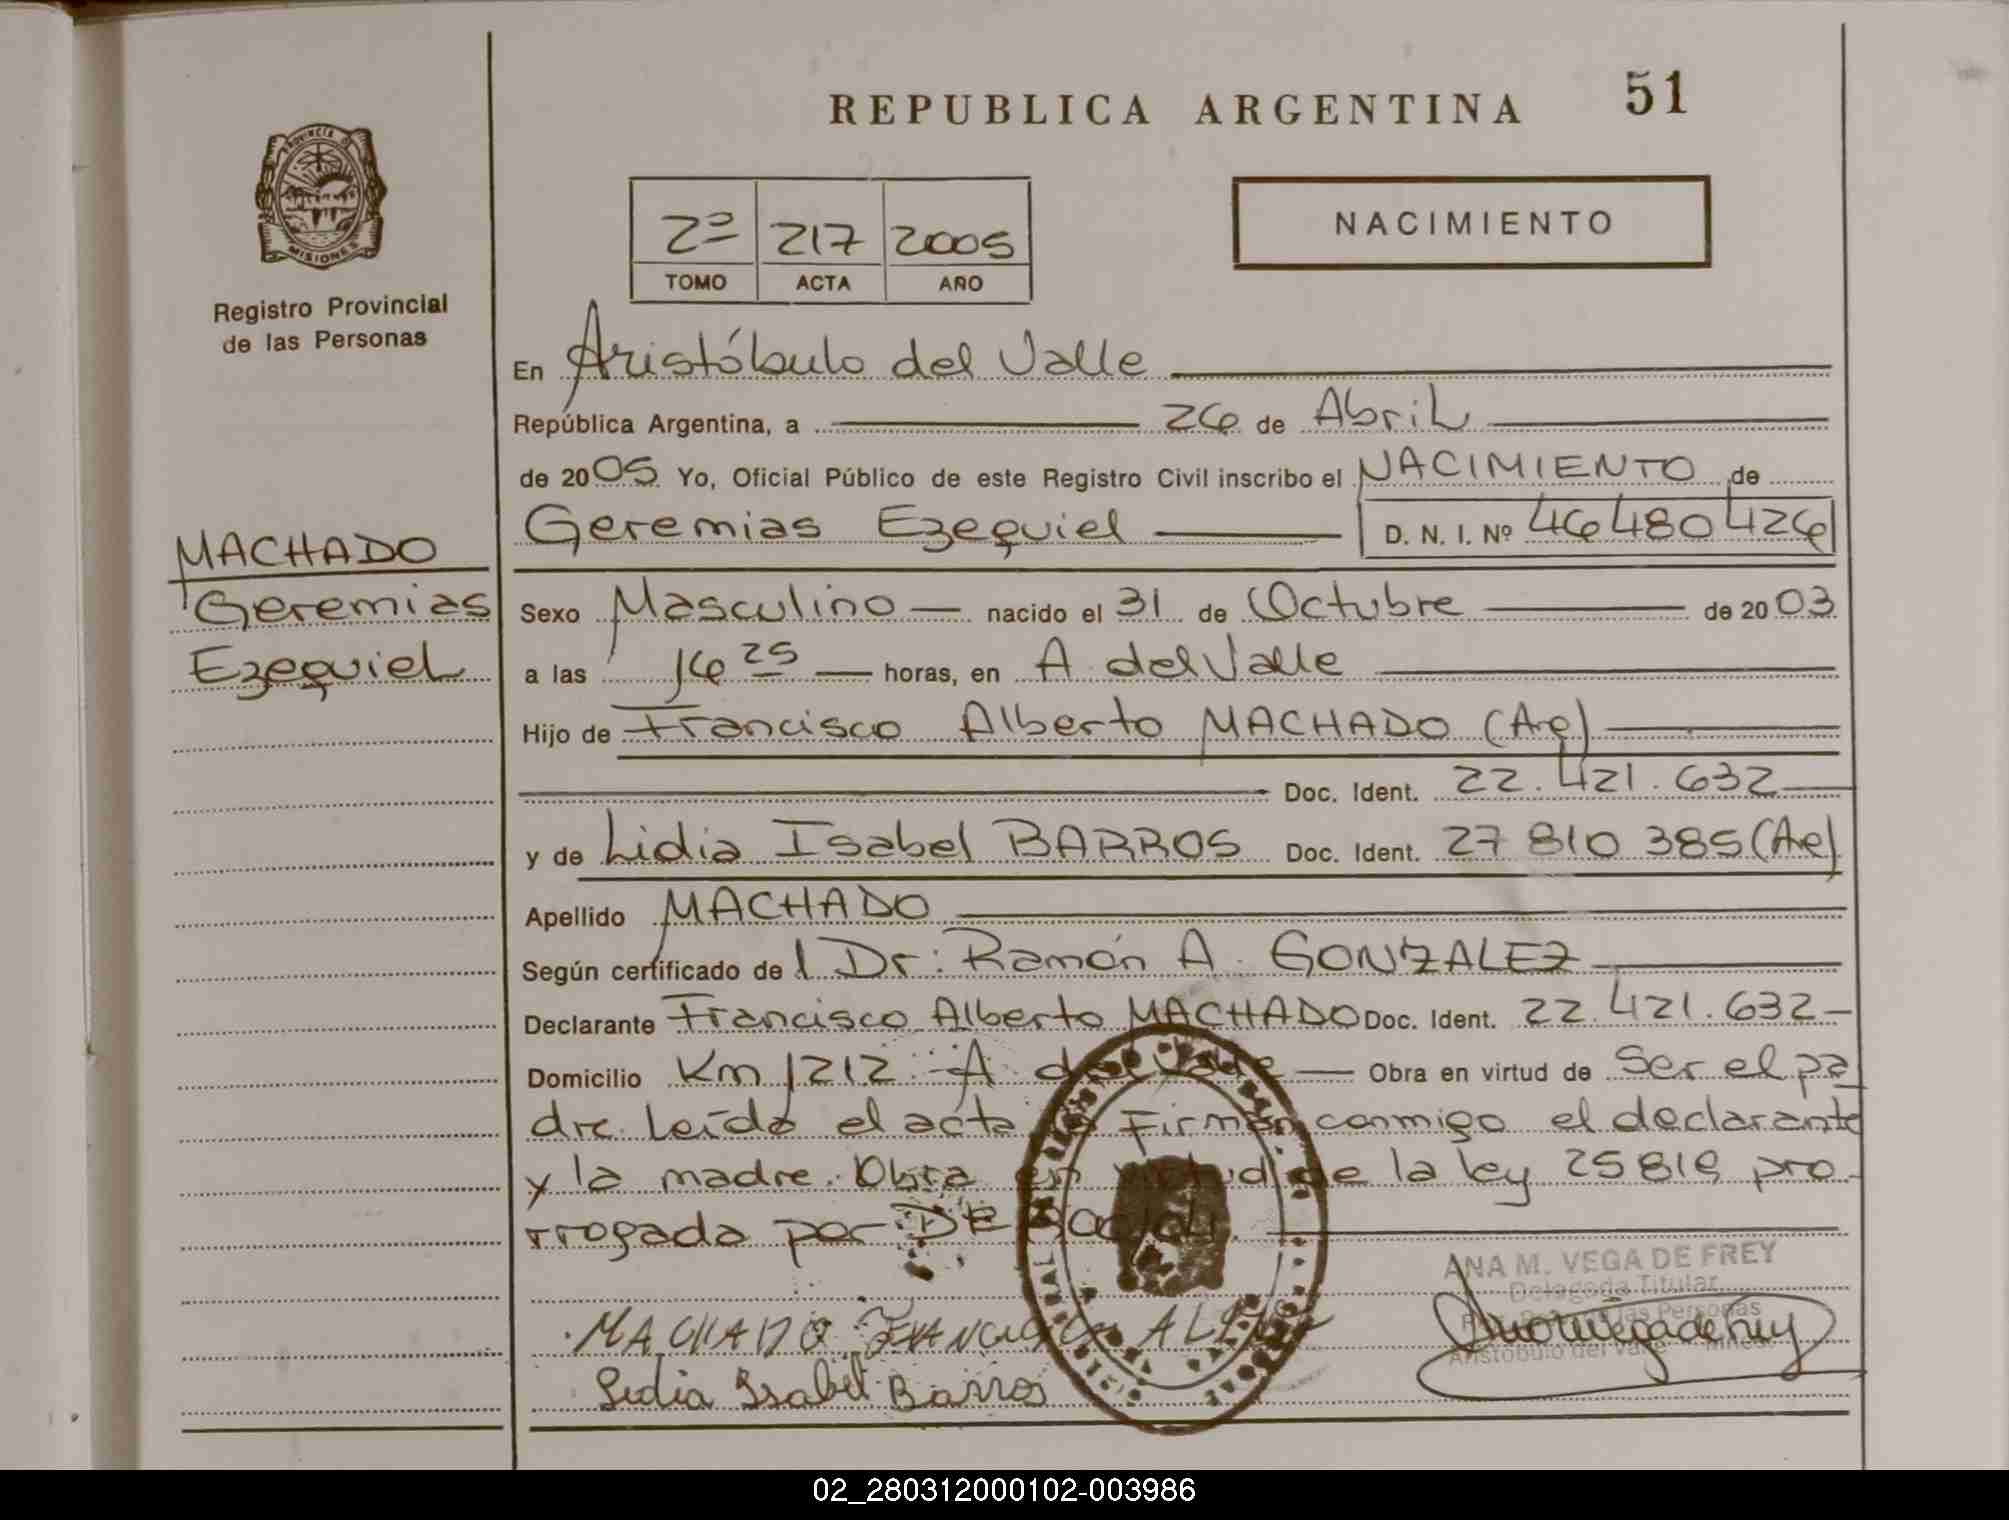 REPUBLICA ARGENTINA 51
PROVINCIA D
MISIONES
Registro Provincial
de las Personas
NACIMIENTO
2º 217 2005
TOMO ACTA AÑO
En Aristóbulo del Valle
República Argentina, a 26 de Abril
de 2005 Yo, Oficial Público de este Registro Civil inscribo el NACIMIENTO de
Geremias Ezequiel D. N. I. Nº 46480426
MACHADO
Geremias
Ezequiel
Sexo Masculino nacido el 31 de Octubre de 2003
a las 16 25 horas, en A del Valle
Hijo de Francisco Alberto MACHADO (Ae)
Doc. Ident. 22.421.632
y de Lidia Isabel BARROS Doc. Ident. 27 810 385 (Ae)
Apellido MACHADO
Según certificado de l Dr: Ramón A. GONZALEZ
Declarante Francisco Alberto MACHADO Doc. Ident. 22.421.632
Domicilio Km 1212 A del Valle Obra en virtud de Ser el pa
dre. Leída el acta Firman conmigo el declarante
y la madre. Obra en virtud de la ley 25819 pro-
rrogada por
ANA M. VEGA DE FREY
Delegada Titular
las Personas
Aristóbulo del Valle
MACHADO FRANCISCO
Lidia Isabel Barros
02_280312000102-003986